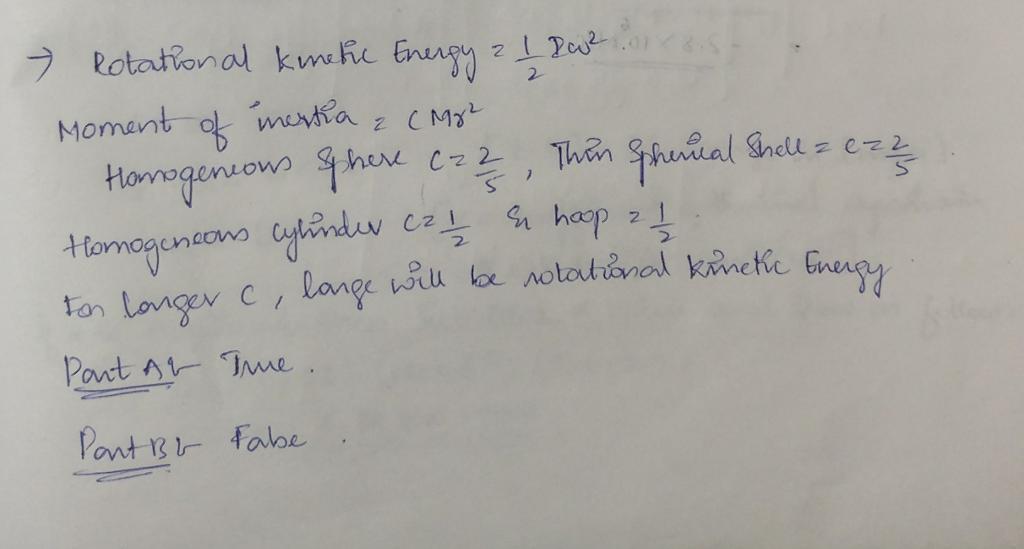 → Rotational kinetic Energy = 1/2 Iω².
Moment of inertia = CMr²
Homogeneous Sphere C = 2/5, Thin Spherical Shell = C = 2/5.
Homogeneous cylinder C = 1/2 & hoop = 1/2.
For longer C, large will be rotational kinetic Energy.
Part A :- True.
Part B :- False.